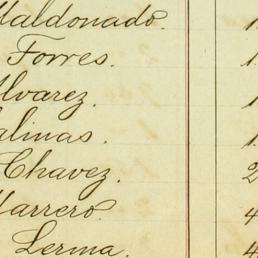 Maldonado. 1
Torres. 1
Alvarez. 1
Salinas. 1
Chavez. 2
Marrero. 4
Lerma. 4